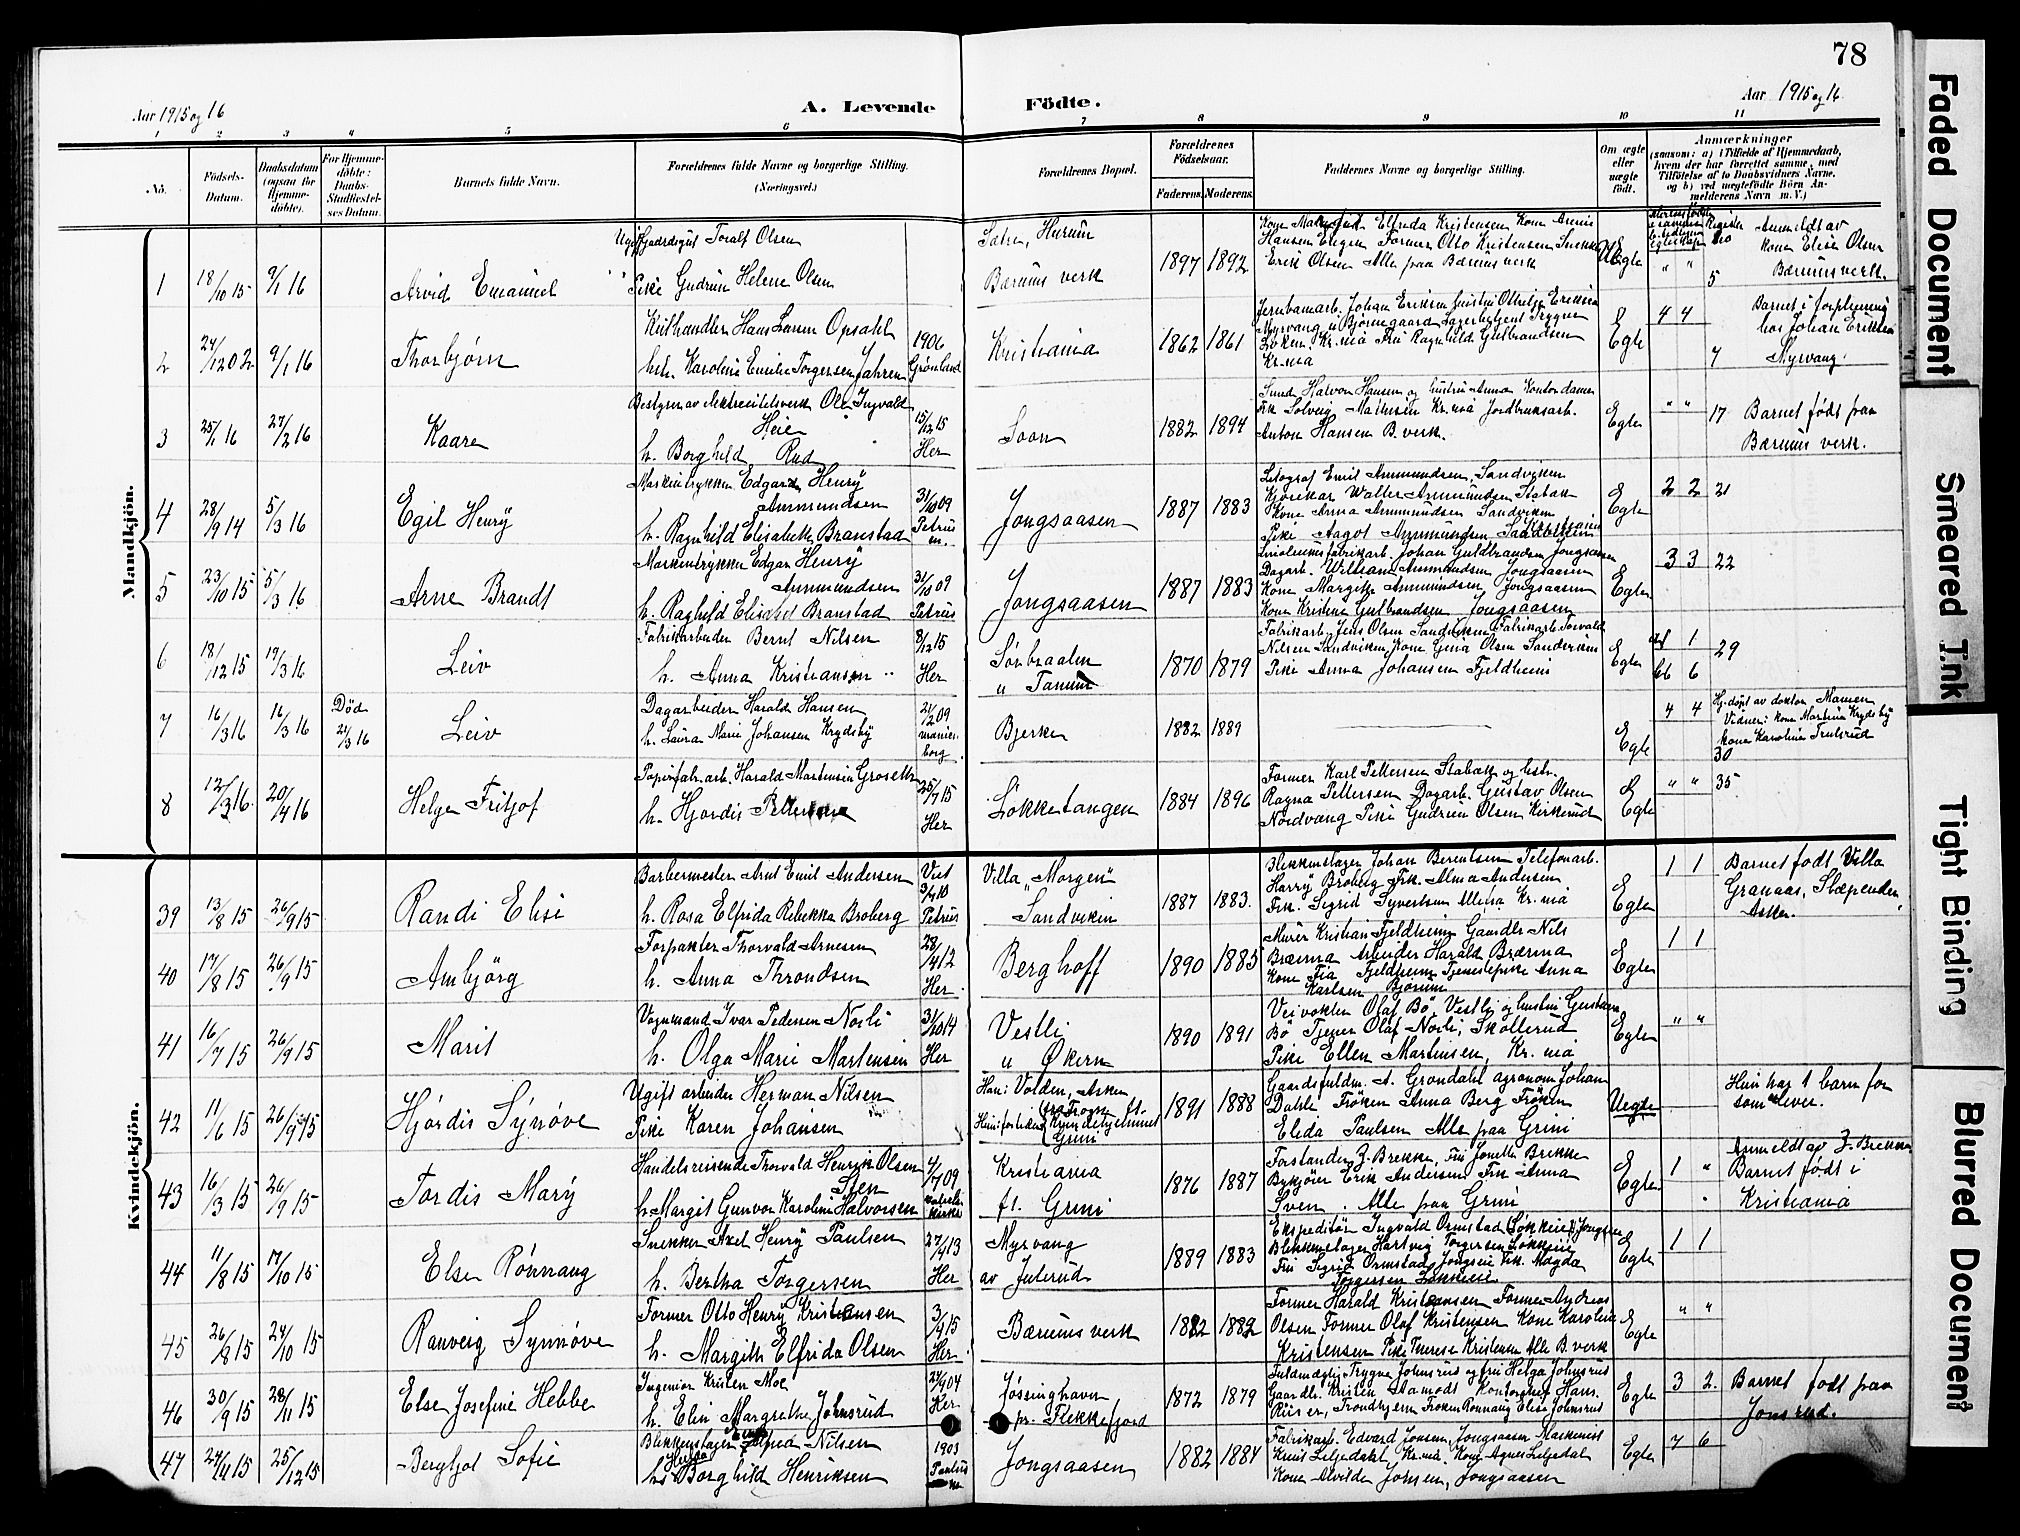 78
Aar 1915 og 16
A. Levende Födte.
Aar 1915 og 16.
1 2 3 4 5 6 7 8 9 10 11
No.
Födsels-Datum.
Daabsdatum (ogsaa for Hjemme-döbte).
For Hjemme-döbte: Daabs-Stadfæstel-ses Datum.
Barnets fulde Navn.
Forældrenes fulde Navne og borgerlige Stilling. (Næringsvei.)
Forældrenes Bopæl.
Forældrenes Födselsaar.
Faderens. Moderens.
Faddernes Navne og borgerlige Stilling.
Om ægte eller uægte födt.
Anmærkninger
(saasom: a) i Tilfælde af Hjemmedaab, hvem der har forrettet samme, med Tilföielse af to Daabsvidners Navne, og b) ved uægtefödte Börn An-melderens Navn m. V.)
Mandkjön.
1 18/10 15 9/1 16 Arvid Emanuel
Toralf Olsen
Pike Gudrun Helene Olsen
Sætre, Hurum
Bærums verk
1897 1892
Hansen Engen Former Otto Kristensen
Erik Olsen Alle paa Bærums verk
Anmeldt av
kone Elise Olsen
Bærums verk.
5
2 24/12 02 9/1 16 Thorbjørn
Hans Opsahl
h. Karoline Emilie Torgersen Jahren
1906 Grønland
Kristiania
1862 1861
Egte
4 4
7
Barnet i forpleining
hos Johan Eriksen
Myrvang
3 25/1 16 27/2 16 Kaare
Bestyrer av elektricitetsverk Ole Ingvald
Heie
h. Borghild Rud
15/12 15 Her
Soon
1882 1894
Anton Hansen B. verk.
Egte
" " 17
Barnet født paa
Bærums verk.
4 28/9 14 5/3 16 Egil Henry
Maskintrykker Edgar Henry
Ammundsen
h. Ragnhild Elisabeth Branstad
31/10 09 Petrus
Jongsaasen
1887 1883
Litograf Emil Ammundsen, Sandviken
Kjørekar Walter Ammundsen Stabæk
Kone Anna Ammundsen Sandviken
Pike Aagot Ammundsen Sandviken
Egte
2 2 21
5 23/10 15 5/3 16 Arne Brandt
Maskintrykker Edgar Henry
Ammundsen
h. Raghild Elisabet Branstad
31/10 09 Petrus
Jongsaasen
1887 1883
Linoleumsfabrikarb. Johan Guldbrandsen Jongsaasen
Dagarb. William Ammundsen Jongsaasen
Kone Margith Ammundsen Jongsaasen
Kone Kristine Gulbrandsen Jongsaasen
Egte
3 3 22
6 18/12 15 19/3 16 Leiv
Fabrikarbeider Bernt Nilsen
h. Anna Kristiansen
8/12 15 Her
Sørbraaten
u Tanum
1870 1879
Fabrikarb. Jens Olsen Sandviken Fabrikarb. Torvald
Nilsen Sandviken Kone Gina Olsen Sandviken
Pike Anna Johansen Fjeldheim
Egte
1
6 29
7 16/3 16 16/3 16 Død 21/3 16 Leiv
Dagarbeider Harald Hansen
h. Laura Marie Johansen Krydsby
Bjerke
1882 1889
Egte
4 4
Hj.døpt av doktor Mamen
Vidner: kone Martina Krydsby
kone Karoline Trulsrud
30
8 12/3 16 20/4 16 Helge Fritjof
Papirfabr.arb. Harald Martinsen Groseth
h. Hjordis Pettersen
25/7 15 Her
Løkketangen
1884 1896
Former Karl Pettersen Stabæk og hstr.
Ragna Pettersen Dagarb. Gustav Olsen
Nordvang Pike Gudrun Olsen Kirkerud
Egte
" " 35
Kvindekjön.
39 13/8 15 26/9 15 Randi Elise
Barbermester Arnt Emil Andersen
h. Rosa Elfrida Rebekka Broberg
Viet 3/7 10 Petrus
Villa „Morgen"
Sandviken
1887 1883.
Blikkenslager Johan Berentsen Telefonarb.
Harry Broberg Frk. Alma Andersen
Frk. Sigrid Syvertsen Kr.nia
Egte
1 1
Barnet født Villa
Granaas, Slæpenden,
Asker.
40 17/8 15 26/9 15 Ambjörg
Forpakter Thorvald Arnesen
h. Anna Throndsen
28/4 12 Her.
Berghoff
1890 1885
Murer Kristian Fjeldheim Gaardbr. Nils
Brænna Arbeider Harald Brænna
Kone Fia Fjeldheim Tjenestepike Anna
Karlsen Bjørum
Egte
1 1
41 16/7 15 26/9 15 Marit
Vognmand Ivar Pedersen Nosli
h. Olga Marie Martensen
31/10 14 Her
Vestli
u Økern
1890 1891
Veivokter Olaf Bö, Vestli og hustru Gustava
Bö Tjener Olaf Nosli, Skollerud
Pike Ellen Martinsen, Kr. nia
Egte
" "
42 11/6 15 26/9 15 Hjórdis Synøve
Ugift arbeider Herman Nilsen
Pike Karen Johansen
Han: Volden, Asker
Grini
1891 1888
Gaardsfuldm. A. Grøndahl agronom Johan
Dahle Frøken Anna Berg Frøken
Elida Paulsen Alle paa Grini
Uegte
Hun har 1 barn før
som lever.
43 16/3 15 26/9 15 Tordis Mary
Handelsreisende Thorvald Henrik Olsen
Sten
h. Margit Gunvor Karoline Halvorsen
4/7 09
Kristiania
ft. Grini
1876 1887
Forstander Z. Brekke, Fru Jonette Brekke
Bykjører Erik Andersen Frk Anna
Sven. Alle paa Grini
Egte
1 "
Anmeldt av Z. Brekke
Barnet født i
Kristiania
44 11/8 15 17/10 15 Else Rønnaug
Snekker Axel Henry Paulsen
h. Bertha Torgersen
27/9 13 Her
Myrvang
av Juterud
1889 1883
Ekspeditør Ingvald Ormstad
Blikkenslager Hartvig Torgersen Løkkeie
Fru Sigrid Ormstad Jongseie Frk. Magda
Torgersen Løkkeie
Egte
1 1
45 26/8 15 24/10 15 Ranveig Synnøve
Former Otto Henry Kristensen
h. Margith Elfrida Olsen
3/4 15 Her.
Bærums verk
1882 1882
Former Harald Kristensen Former Andreas
Olsen Former Olaf Kristensen Kone Karoline
Kristensen Pike Therese Kristensen Alle B. verk
Egte
" "
46 30/9 15 28/11 15 Else Josefine Hebbe
Ingeniør Kristen Moe
h. Elin Margrethe Johnsrud
24/9 04 Her
Jøssinghavn
pr. Flekkefjord
1872 1879
Fuldmægtig Trygve Johnsrud og fru Helga Johnsrud
Gaardbr. Kristen Stamodt Kontorchef Hans
Riiser, Trondhjem Frøken Rønnaug Elise Johnsrud
Egte
3 2.
Barnet født paa
Jonsrud.
47 24/4 15 25/12 15 Bergljot Sofie
Blikkenslager Alfred Nilsen
h. Borghild Henriksen
1903 Paulus
Jongsaasen
1882 1884
Fabrikarb. Edvard Jonsen, Jongsaasen Maskinist
Knut Liljedahl Kr.nia. Kone Agnes Liljedal
Kone Alvilde Jonsen, Jongsaasen
Egte
7 6
Faded Document
Smeared Ink
Tight Binding
Blurred Document